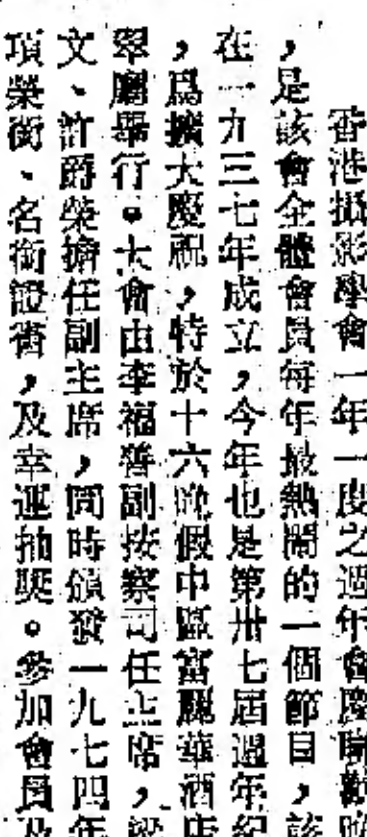 香港攝影學會一年一度之週年會慶聯歡晚
，是該會全體會員每年最熱鬧的一個節目，該
在一九三七年成立，今年也是第卅七屆週年紀
，爲擴大慶祝，特於十六晚假中區富麗華酒店
翠廳舉行。大會由李福善副按察司任主席，梁
文、許爵榮擔任副主席，同時頒發一九七四年
項榮銜、名銜證書，及幸運抽獎。參加會員及